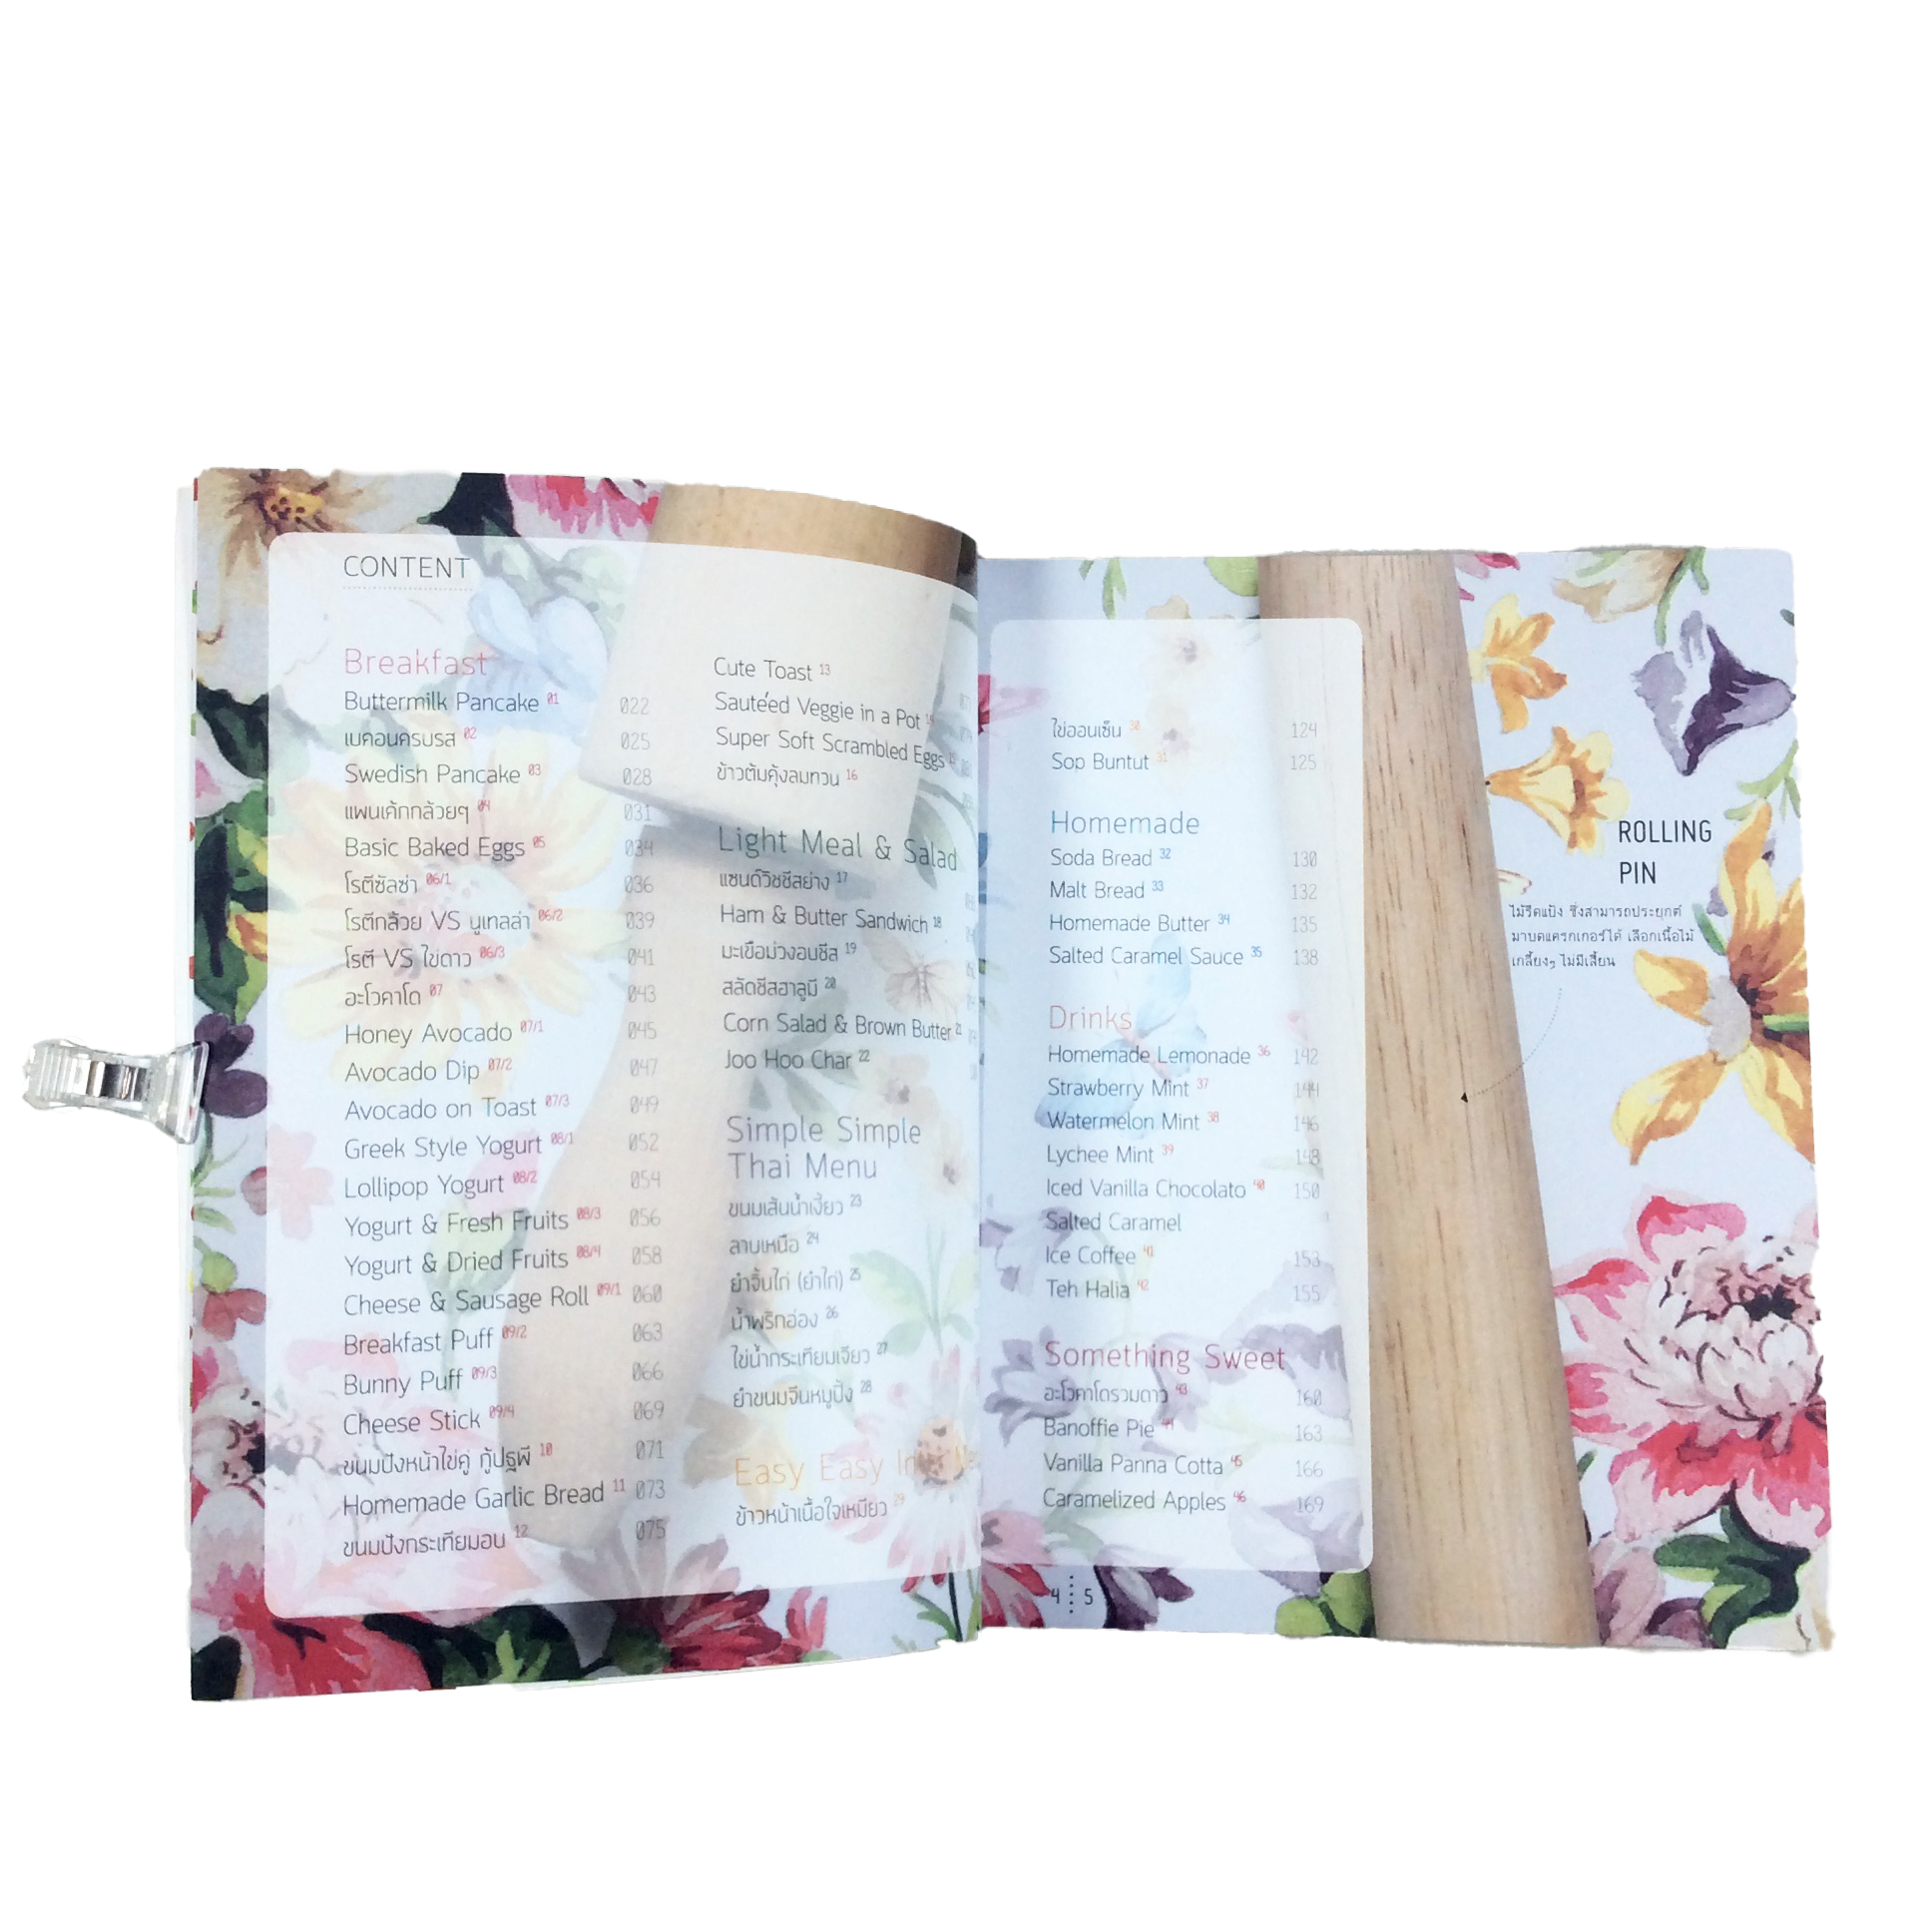 CONTENT
Breakfast
Buttermilk Pancake 01 022
เบคอนครบรส 02 025
Swedish Pancake 03 028
แพนเค้กกล้วยๆ 04 031
Basic Baked Eggs 05 034
โรตีซัลซ่า 06/1 036
โรตีกล้วย VS นูเทลล่า 06/2 039
โรตี VS ไข่ดาว 06/3 041
อะโวคาโด 07 043
Honey Avocado 07/1 045
Avocado Dip 07/2 047
Avocado on Toast 07/3 049
Greek Style Yogurt 08/1 052
Lollipop Yogurt 08/2 054
Yogurt & Fresh Fruits 08/3 056
Yogurt & Dried Fruits 08/4 058
Cheese & Sausage Roll 09/1 060
Breakfast Puff 09/2 063
Bunny Puff 09/3 066
Cheese Stick 09/4 069
ขนมปังหน้าไข่คู่ กู้ปฐพี 10 071
Homemade Garlic Bread 11 073
ขนมปังกระเทียมอบ 12 075
Cute Toast 13
Sauteéd Veggie in a Pot
Super Soft Scrambled Eggs
ข้าวต้มคุ้งลมทวน 16
Light Meal & Salad
แซนด์วิชชีสย่าง 17
Ham & Butter Sandwich 18
มะเขือม่วงอบชีส 19
สลัดชีสฮาลูมี 20
Corn Salad & Brown Butter 21
Joo Hoo Char 22
Simple Simple
Thai Menu
ขนมเส้นน้ำเงี้ยว 23
ลาบเหนือ 24
ยำจิ้นไก่ (ยำไก่) 25
น้ำพริกอ่อง 26
ไข่น้ำกระเทียมเจียว 27
ยำขนมจีนหมูปิ้ง 28
Easy Easy
ข้าวหน้าเนื้อใจเหมียว 29
ไข่ออนเซ็น 30 124
Sop Buntut 31 125
Homemade
Soda Bread 32 130
Malt Bread 33 132
Homemade Butter 34 135
Salted Caramel Sauce 35 138
Drinks
Homemade Lemonade 36 142
Strawberry Mint 37 144
Watermelon Mint 38 146
Lychee Mint 39 148
Iced Vanilla Chocolato 40 150
Salted Caramel
Ice Coffee 41 153
Teh Halia 42 155
Something Sweet
อะโวคาโดรวมดาว 43 160
Banoffie Pie 44 163
Vanilla Panna Cotta 45 166
Caramelized Apples 46 169
4 5
ROLLING
PIN
ไม้รีดแป้ง ซึ่งสามารถประยุกต์
มาบดแครกเกอร์ได้ เลือกเนื้อไม้
เกลี้ยงๆ ไม่มีเสี้ยน